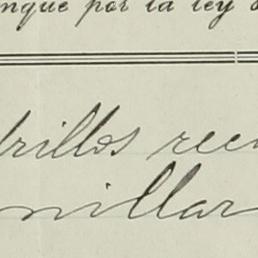 nque por la ley d
drillos rec
millar